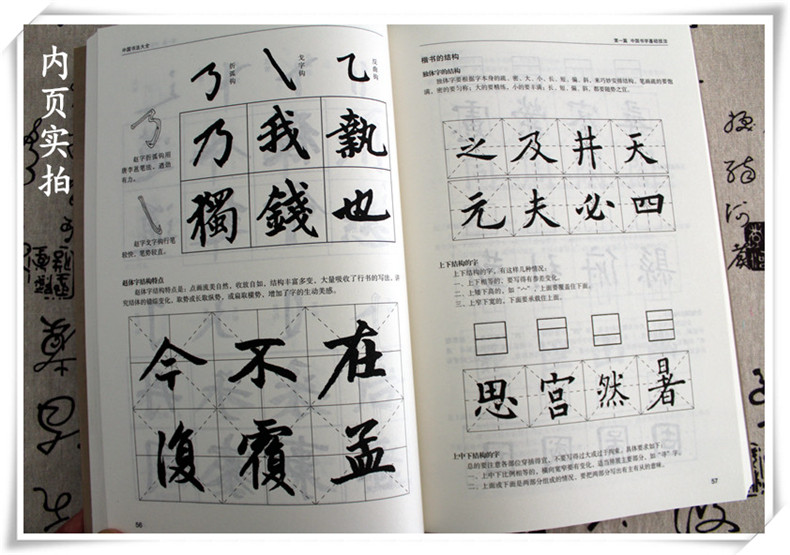 内页实拍
中国书法大全
折弧钩
戈字钩
反曲钩
乃 我 執
獨 錢 也
赵字折弧钩用
有力。
赵字戈字钩行笔
较快,笔势较直。
赵体字结构特点
赵体字结构特点是:点画流美自然,收放自如,结构丰富多变,大量吸收了行书的写法,讲
究结体的错综变化,取势或长取纵势,或扁取横势,增加了字的生动美感。
今 不 在
復 覆 孟
56
第一篇 中国书法基础技法
楷书的结构
独体字的结构
独体字要根据字本身的疏、密、大、小、长、短、偏、斜,来巧妙安排结构。笔画疏的要饱
满,密的要匀称;大的要精练,小的要丰满;长、短、偏、斜,都要随势之宜。
之 及 井 天
元 夫 必 四
上下结构的字
上下结构的字,有这样几种情况。
一、上下相等的,要写得有参差变化。
二、上矮下高的,如“宀”,上面要覆盖住下面。
三、上窄下宽的,下面要承载住上面。
思 宫 然 暑
上中下结构的字
总的要注意各部位穿插得宜,不要写得过大或过于拘束。具体要求如下:
一、上中下比例相等的,横向宽窄要有变化,适当照顾主要部分,如“率”字。
二、上面或下面是两部分组成的情况,要把两部分写出有主有从的意味。
57